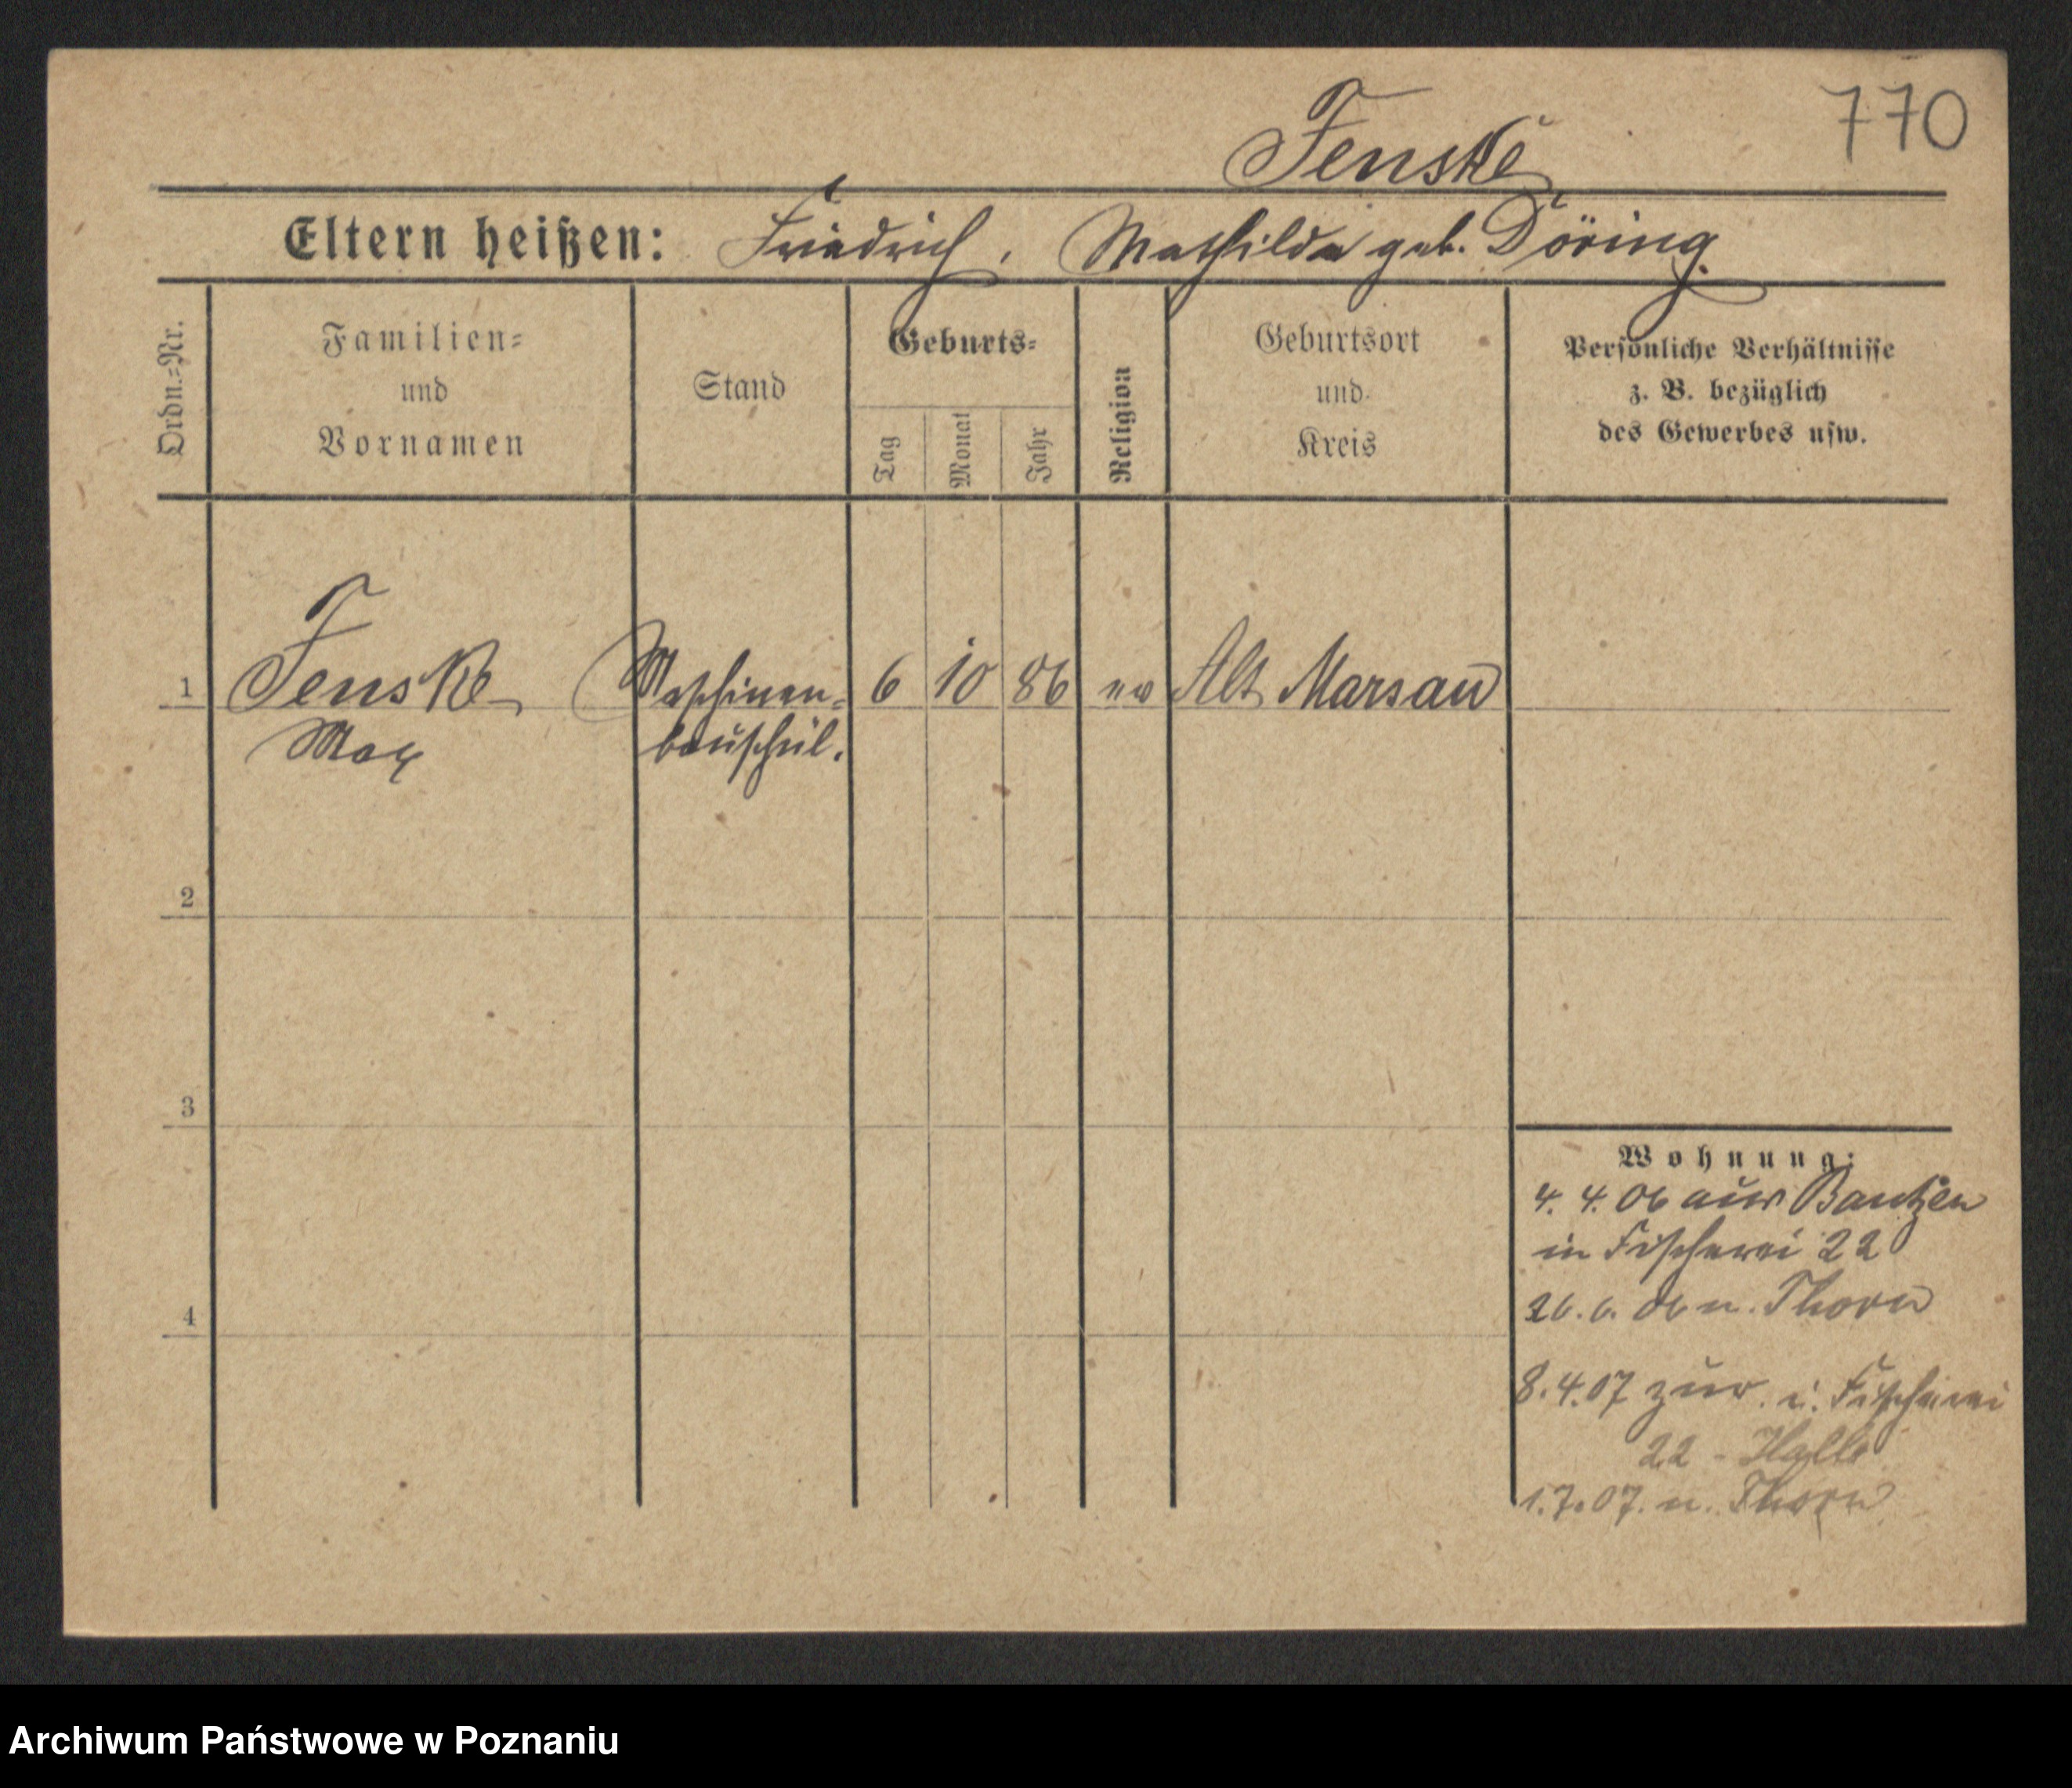 770
Fenske
Eltern heißen: Friedrich, Mathilde geb. Döring
Ordn.=Nr.
Familien=
und
Vornamen
Stand
Geburts=
Tag
Monat
Jahr
Religion
Geburtsort
und
Kreis
Persönliche Verhältnisse
z. B. bezüglich
des Gewerbes usw.
1 Fenske Maschinen= 6 10 86 ev Alt Marsau
Max bauschül.
2
3
4
Wohnung:
4. 4. 06 aus Bautzen
in Fischerei 22
26. 6. 06 n. Thorn
8. 4. 07 zur. i. Fischerei
22 -
1. 7. 07. n. Thorn
Archiwum Państwowe w Poznaniu